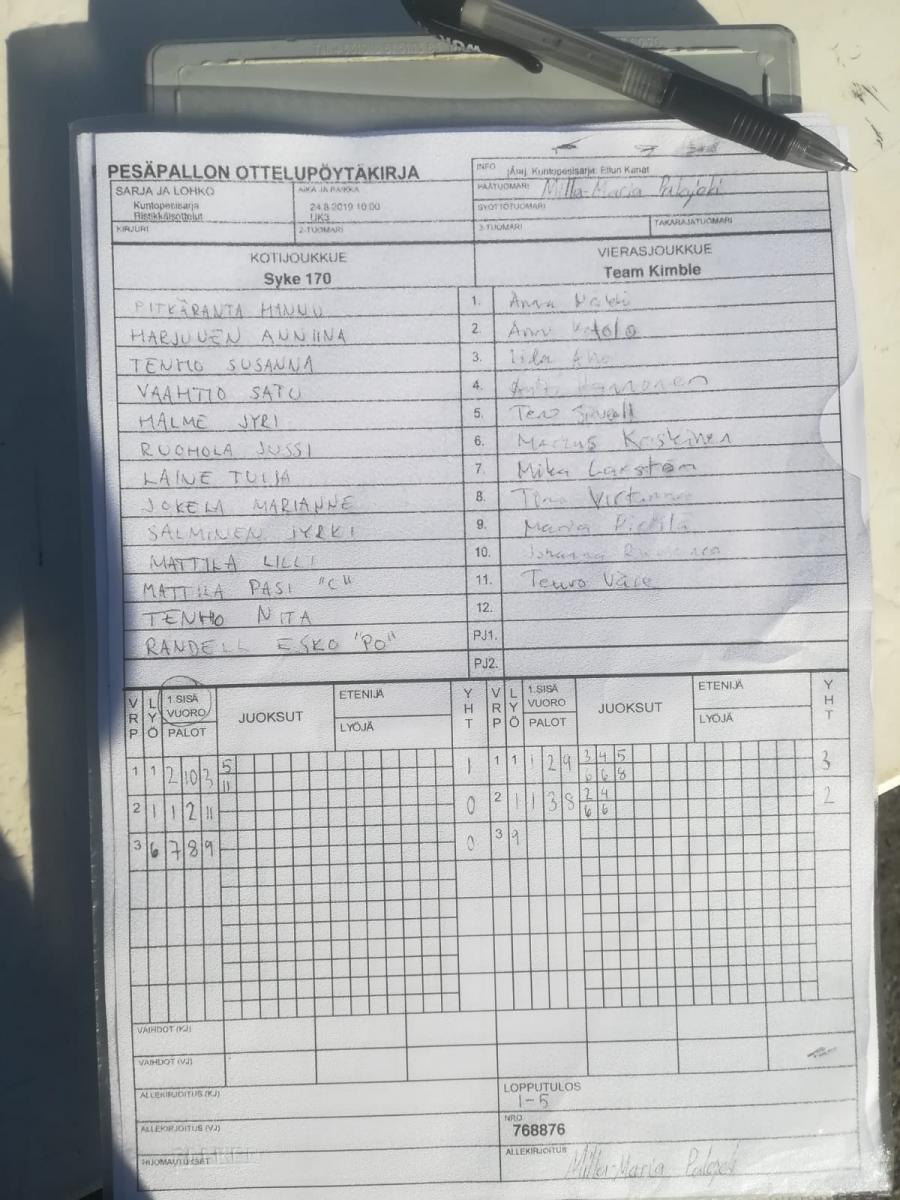 PESÄPALLON OTTELUPÖYTÄKIRJA
INFO
Kuntopesisarja: Eilun Kanat
SARJA JA LOHKO
Kuntopesisarja
Ristikkäisottelut
AIKA JA PAIKKA
24.8.2019 10:00
UK3
PÄÄTUOMARI Milla-Maria Palojoki
SYÖTTÖTUOMARI
KIRJURI
2-TUOMARI
3-TUOMARI
TAKARAJATUOMARI
KOTIJOUKKUE
Syke 170
VIERASJOUKKUE
Team Kimble
PITKÄRANTA HANNU 1. Anna
HARJUNEN ANNIINA 2. Anni
TENHO SUSANNA 3. Iida Aho
VAAHTIO SATU 4.
MALME JYRI 5. Tero
RUOHOLA JUSSI 6. Marcus Koskinen
LAINE TUIJA 7. Mika
JOKELA MARIANNE 8. Virtanen
SALMINEN JYRKI 9. Maria Pietilä
MATTILA LILLI 10. Johanna
MATTILA PASI "C" 11. Teuvo
TENHO NITA 12.
RANDELL ESKO "PO" PJ1.
PJ2.
VRP LYÖ 1.SISÄ VUORO PALOT JUOKSUT ETENIJÄ LYÖJÄ YHT VRP LYÖ 1.SISÄ VUORO PALOT JUOKSUT ETENIJÄ LYÖJÄ YHT
1 1 2 10 3 5 1 1 1 1 2 9 3 4 5 3
11 6 6 8
2 1 1 2 11 0 2 1 1 3 8 2 4 2
6 6
3 6 7 8 9 0 3 9
VAIHDOT (KJ)
VAIHDOT (VJ)
ALLEKIRJOITUS (KJ)
LOPPUTULOS
1-5
ALLEKIRJOITUS (VJ)
NRO
768876
HUOMAUTUKSET
ALLEKIRJOITUS Milla-Maria Palojoki